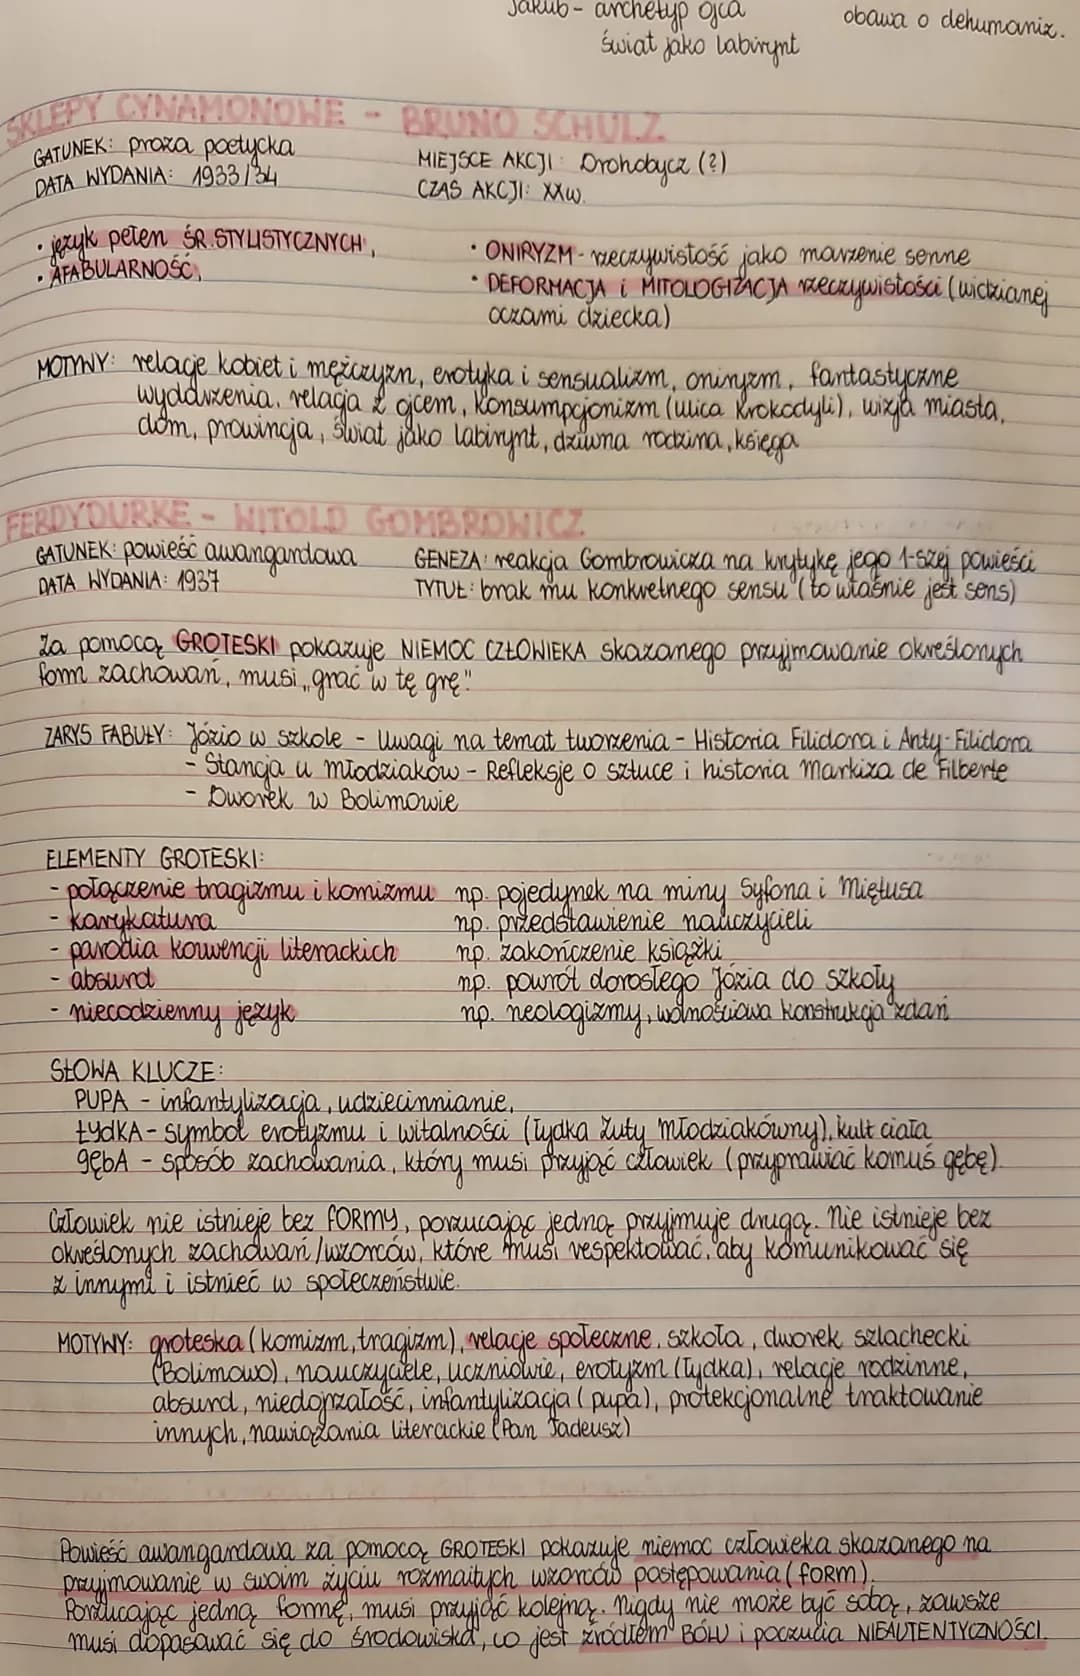 Jakub - archetyp ojca
świat jako labirynt
obawa o dehumaniz.
SKLEPY CYNAMONOWE - BRUNO SCHULZ
GATUNEK: proza poetycka
DATA WYDANIA: 1933/34
MIEJSCE AKCJI: Drohobycz (?)
CZAS AKCJI: XXw.
• język pełen ŚR. STYLISTYCZNYCH,
• AFABULARNOŚĆ,
• ONIRYZM - rzeczywistość jako marzenie senne
• DEFORMACJA i MITOLOGIZACJA rzeczywistości (widzianej
oczami dziecka)
MOTYWY: relacje kobiet i mężczyzn, erotyka i sensualizm, oniryzm, fantastyczne
wydarzenia, relacja z ojcem, konsumpcjonizm (ulica Krokodyli), wizja miasta,
dom, prowincja, świat jako labirynt, dziwna rodzina, księga
FERDYDURKE - WITOLD GOMBROWICZ
GATUNEK: powieść awangardowa
DATA WYDANIA: 1937
GENEZA: reakcja Gombrowicza na krytykę jego 1-szej powieści
TYTUŁ: brak mu konkretnego sensu (to właśnie jest sens)
Za pomocą GROTESKI pokazuje NIEMOC CZŁOWIEKA skazanego przyjmowanie określonych
form zachowań, musi „grać w tę grę"
ZARYS FABUŁY: Józio w szkole - Uwagi na temat tworzenia - Historia Filidora i Anty-Filidora
- Stancja u młodziaków - Refleksje o sztuce i historia Markiza de Filberte
- Dworek w Bolimowie
ELEMENTY GROTESKI:
- połączenie tragizmu i komizmu np. pojedynek na miny Syfona i Miętusa
- karykatura np. przedstawienie nauczycieli
- parodia konwencji literackich np. zakończenie książki
- absurd np. powrót dorosłego Józia do szkoły
- niecodzienny język np. neologizmy, wolnościowa konstrukcja zdań
SŁOWA KLUCZE:
PUPA - infantylizacja, udziecinnianie,
ŁYDKA - symbol erotyzmu i witalności (łydka Zuty Młodziakówny), kult ciała
GĘBA - sposób zachowania, który musi przyjąć człowiek (przyprawiać komuś gębę).
Człowiek nie istnieje bez FORMY, porzucając jedną przyjmuje drugą. Nie istnieje bez
określonych zachowań/wzorców, które musi respektować, aby komunikować się
z innymi i istnieć w społeczeństwie.
MOTYWY: groteska (komizm, tragizm), relacje społeczne, szkoła, dworek szlachecki
(Bolimowo), nauczyciele, uczniowie, erotyzm (łydka), relacje rodzinne,
absurd, niedojrzałość, infantylizacja (pupa), protekcjonalne traktowanie
innych, nawiązania literackie (Pan Tadeusz)
Powieść awangardowa za pomocą GROTESKI pokazuje niemoc człowieka skazanego na
przyjmowanie w swoim życiu rozmaitych wzorców postępowania (form).
Porzucając jedną formę, musi przyjąć kolejną. Nigdy nie może być sobą, zawsze
musi dopasować się do środowiska, co jest źródłem BÓLU i poczucia NIEAUTENTYCZNOŚCI.